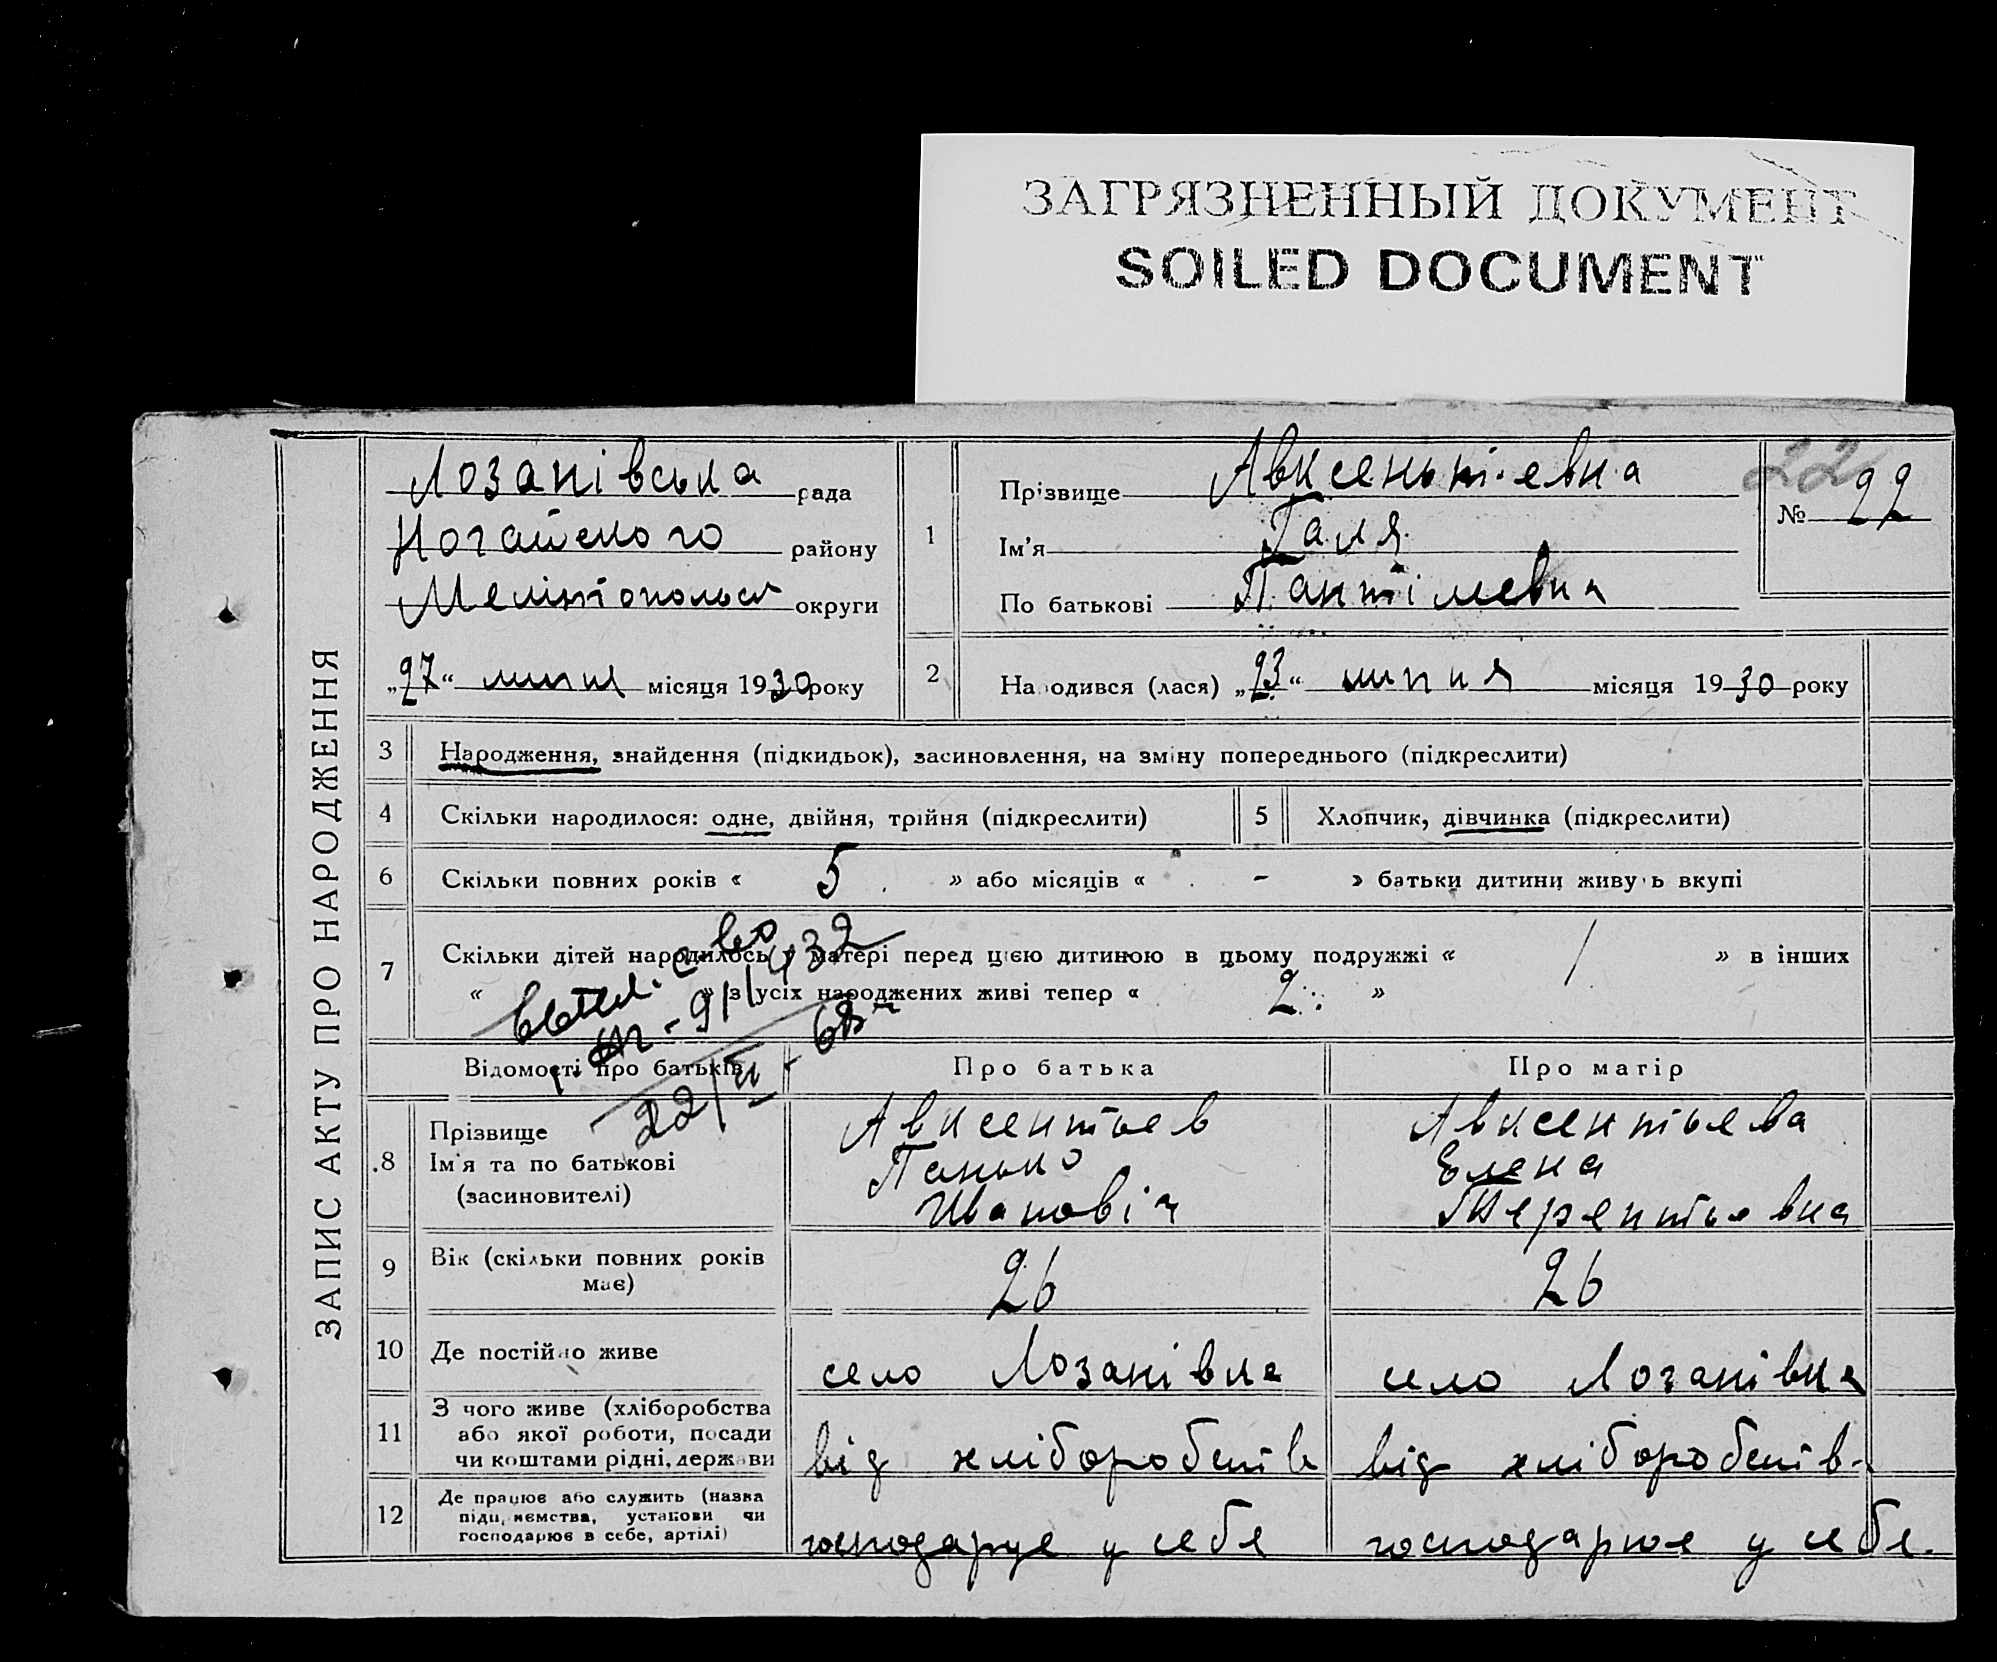 ЗАГРЯЗНЕННЫЙ ДОКУМЕНТ
SOILED DOCUMENT
ЗАПИС АКТУ ПРО НАРОДЖЕННЯ
Лозанівська рада
Ногайського району
Мелітопольск округи
„27“ липня місяця 1930 року
1
Прізвище Авксентьевна
Ім'я Галя
По батькові Пантілмевна
22
№ 22
2
Народився (лася) „23“ липня місяця 1930 року
3 Народження, знайдення (підкидьок), засиновлення, на зміну попереднього (підкреслити)
4 Скільки народилося: одне, двійня, трійня (підкреслити)
5 Хлопчик, дівчинка (підкреслити)
6 Скільки повних років « 5 » або місяців « - » батьки дитини живуть вкупі
7 Скільки дітей народилось у матері перед цією дитиною в цьому подружжі « / » в інших
« » з усіх народжених живі тепер « 2 »
22/VI - 68
Відомості про батьків
Про батька
Про матір
8
Прізвище
Ім'я та по батькові
(засиновителі)
Авксентьев
Панько
Иванавіч
Авксентьева
Елена
Терентьевна
9 Вік (скільки повних років
має)
26
26
10 Де постійно живе
село Лозанівка
село Лозанівка
11
З чого живе (хліборобства
або якої роботи, посади
чи коштами рідні, держави
від хліборобств
від хліборобств.
12
Де працює або служить (назва
підприємства, установи чи
господарює в себе, артілі)
господарує у себе
господарює у себе.